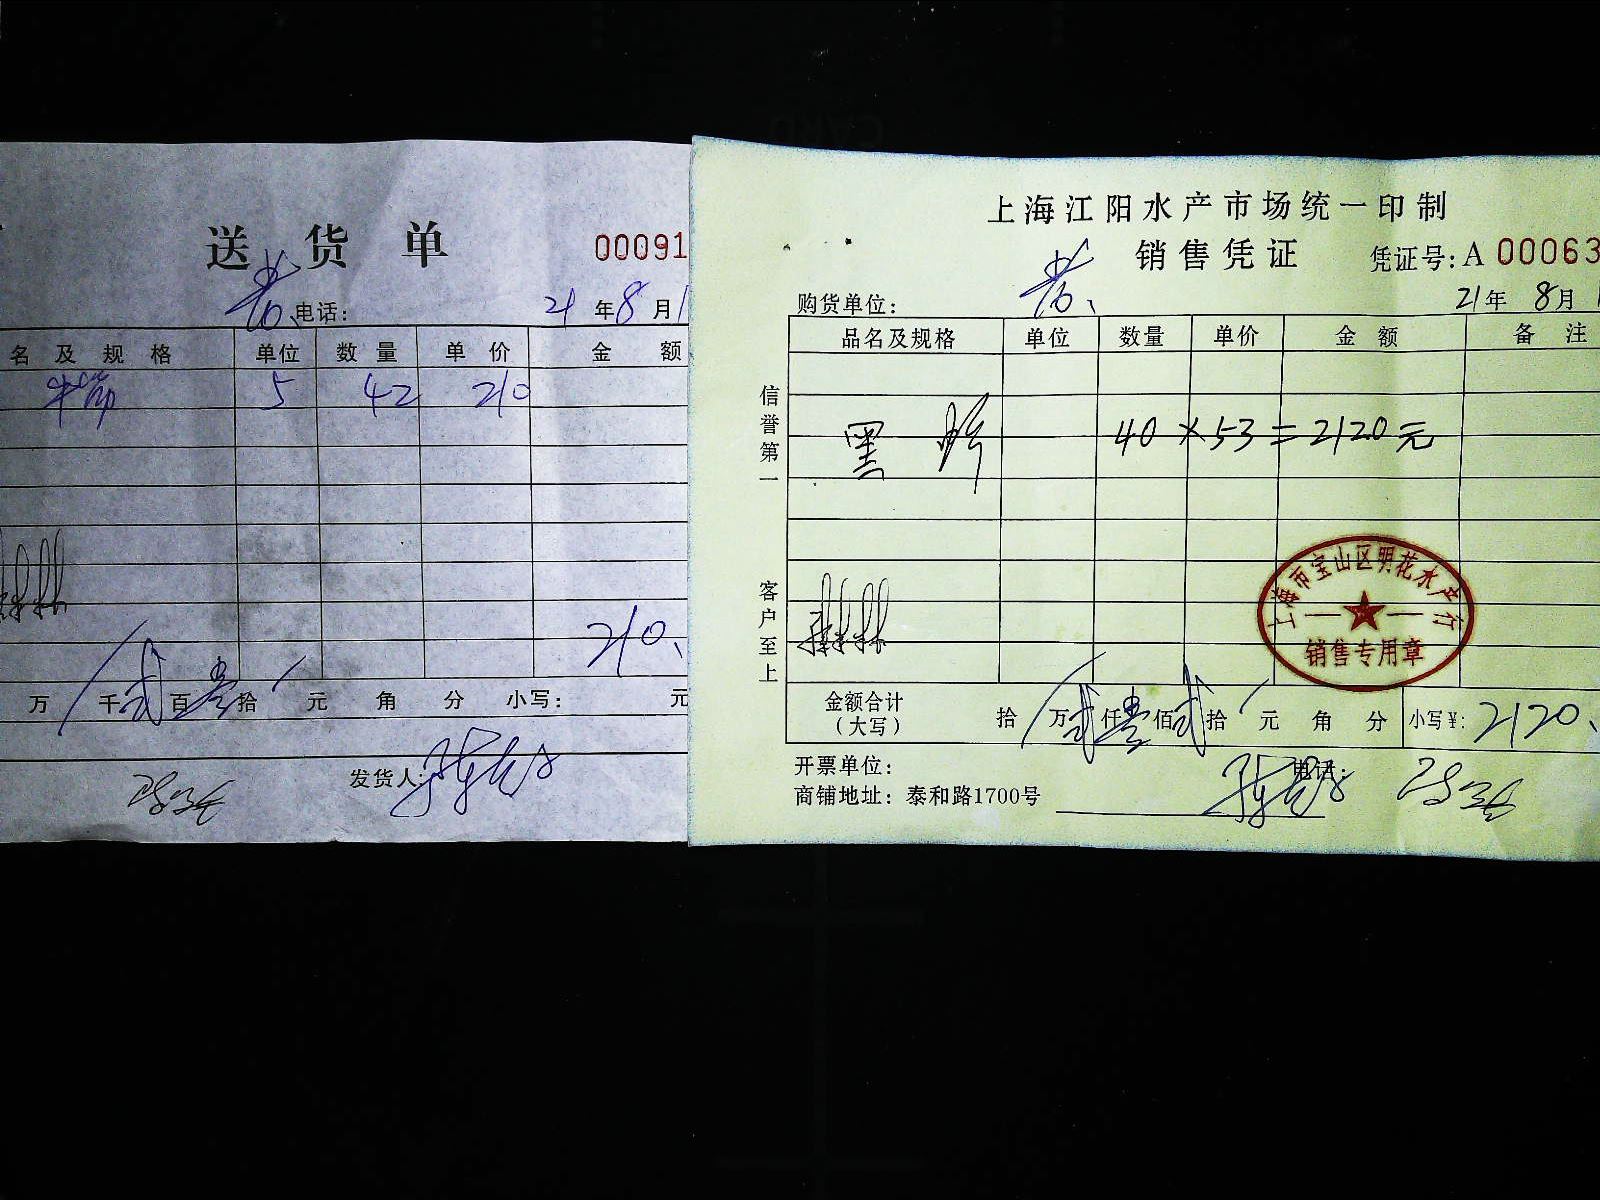 送货单
00091
电话:
21年8月1
名及规格 单位 数量 单价 金额
5 42 210
210、
万 千贰百壹拾 元 角 分 小写: 元
发货人:
上海江阳水产市场统一印制
销售凭证
凭证号:A 00063
购货单位:
21年 8月 1
品名及规格 单位 数量 单价 金额 备注
信誉第一
黑 40×53=2120元
客户至上
上海市宝山区明花水产行
销售专用章
金额合计
(大写)
拾 万贰仟壹佰贰拾 元 角 分 小写¥: 2120、
开票单位:
电话:
商铺地址: 泰和路1700号